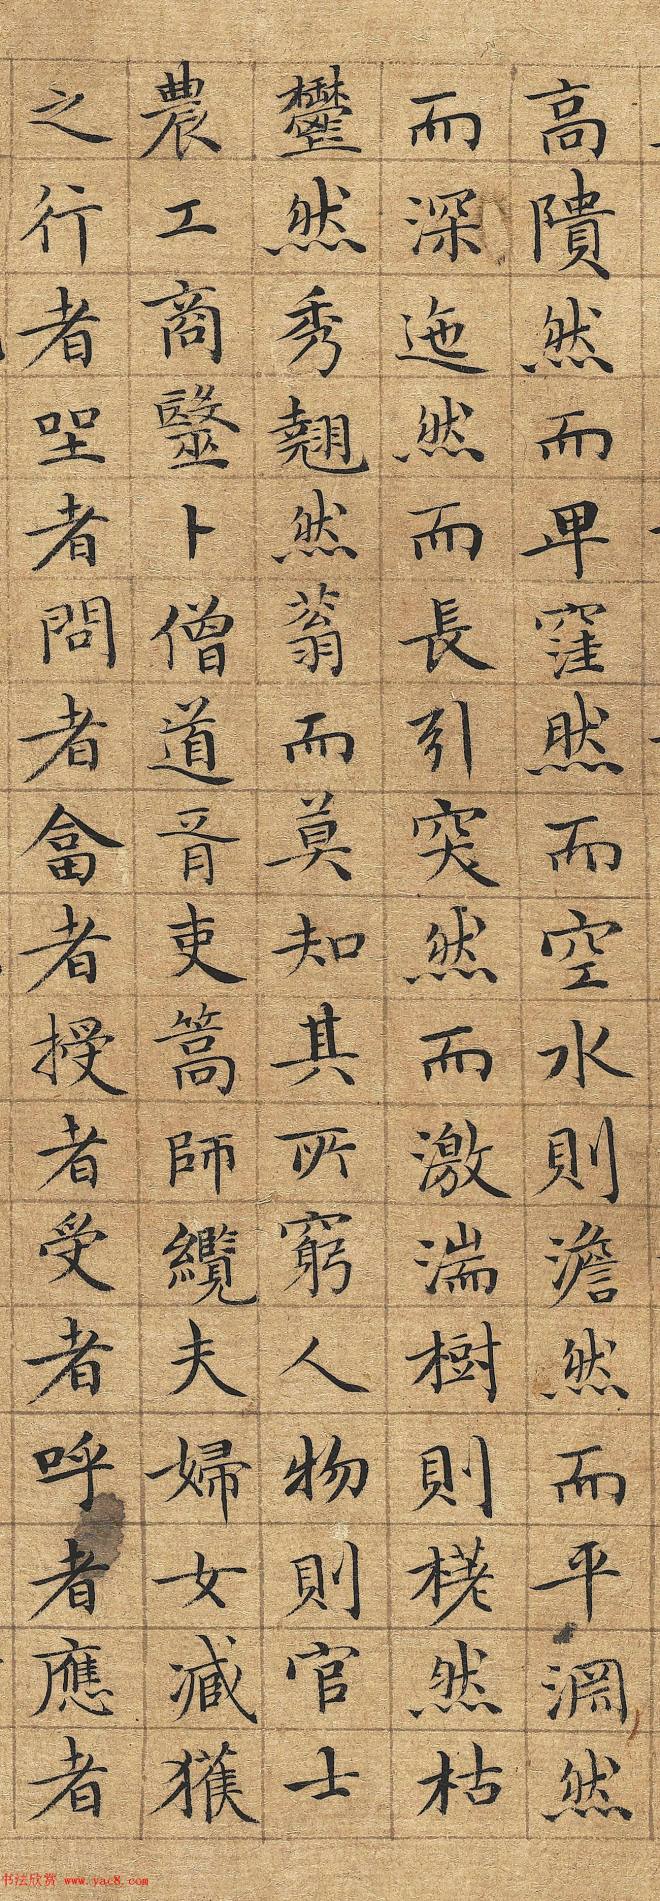 高隤然而卑窪然而空水則澹然而平淵然
而深迤然而長引突然而激湍樹則㭘然枯
鬱然秀翹然蓊而莫知其所窮人物則官士
農工商毉卜僧道胥吏篙師纜夫婦女臧獲
之行者坐者問者畣者授者受者呼者應者
书法欣赏 www.yac8.com